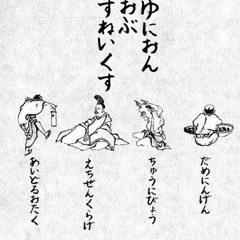 ゆにおん
おぶ
すねいくす
だめにんげん
ちゅうにびょう
えちぜんくらげ
あいどるおたく